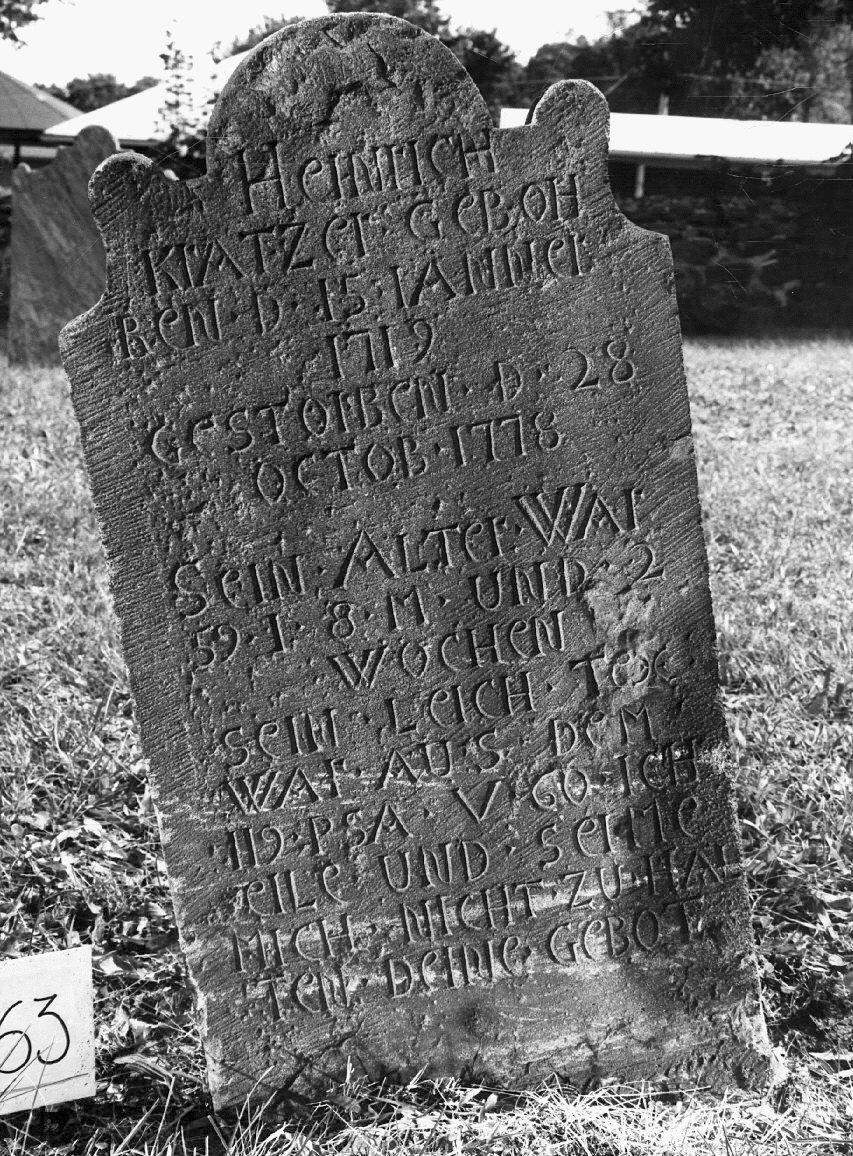 HEINRICH
KRATZER · GEBOH
REN · D · 15 · IANNER
1719
GESTORBEN · D · 28
OCTOB · 1778
SEIN · ALTER · WAR
59 · I · 8 · M · UND · 2
WOCHEN
SEIN · LEICH · TEXE
WAR · AUS · DEM
119 · PSA · V · 60 · ICH
EILE · UND · SEIME
MICH · NICHT · ZU · HAL
TEN · DEINE · GEBOT
63